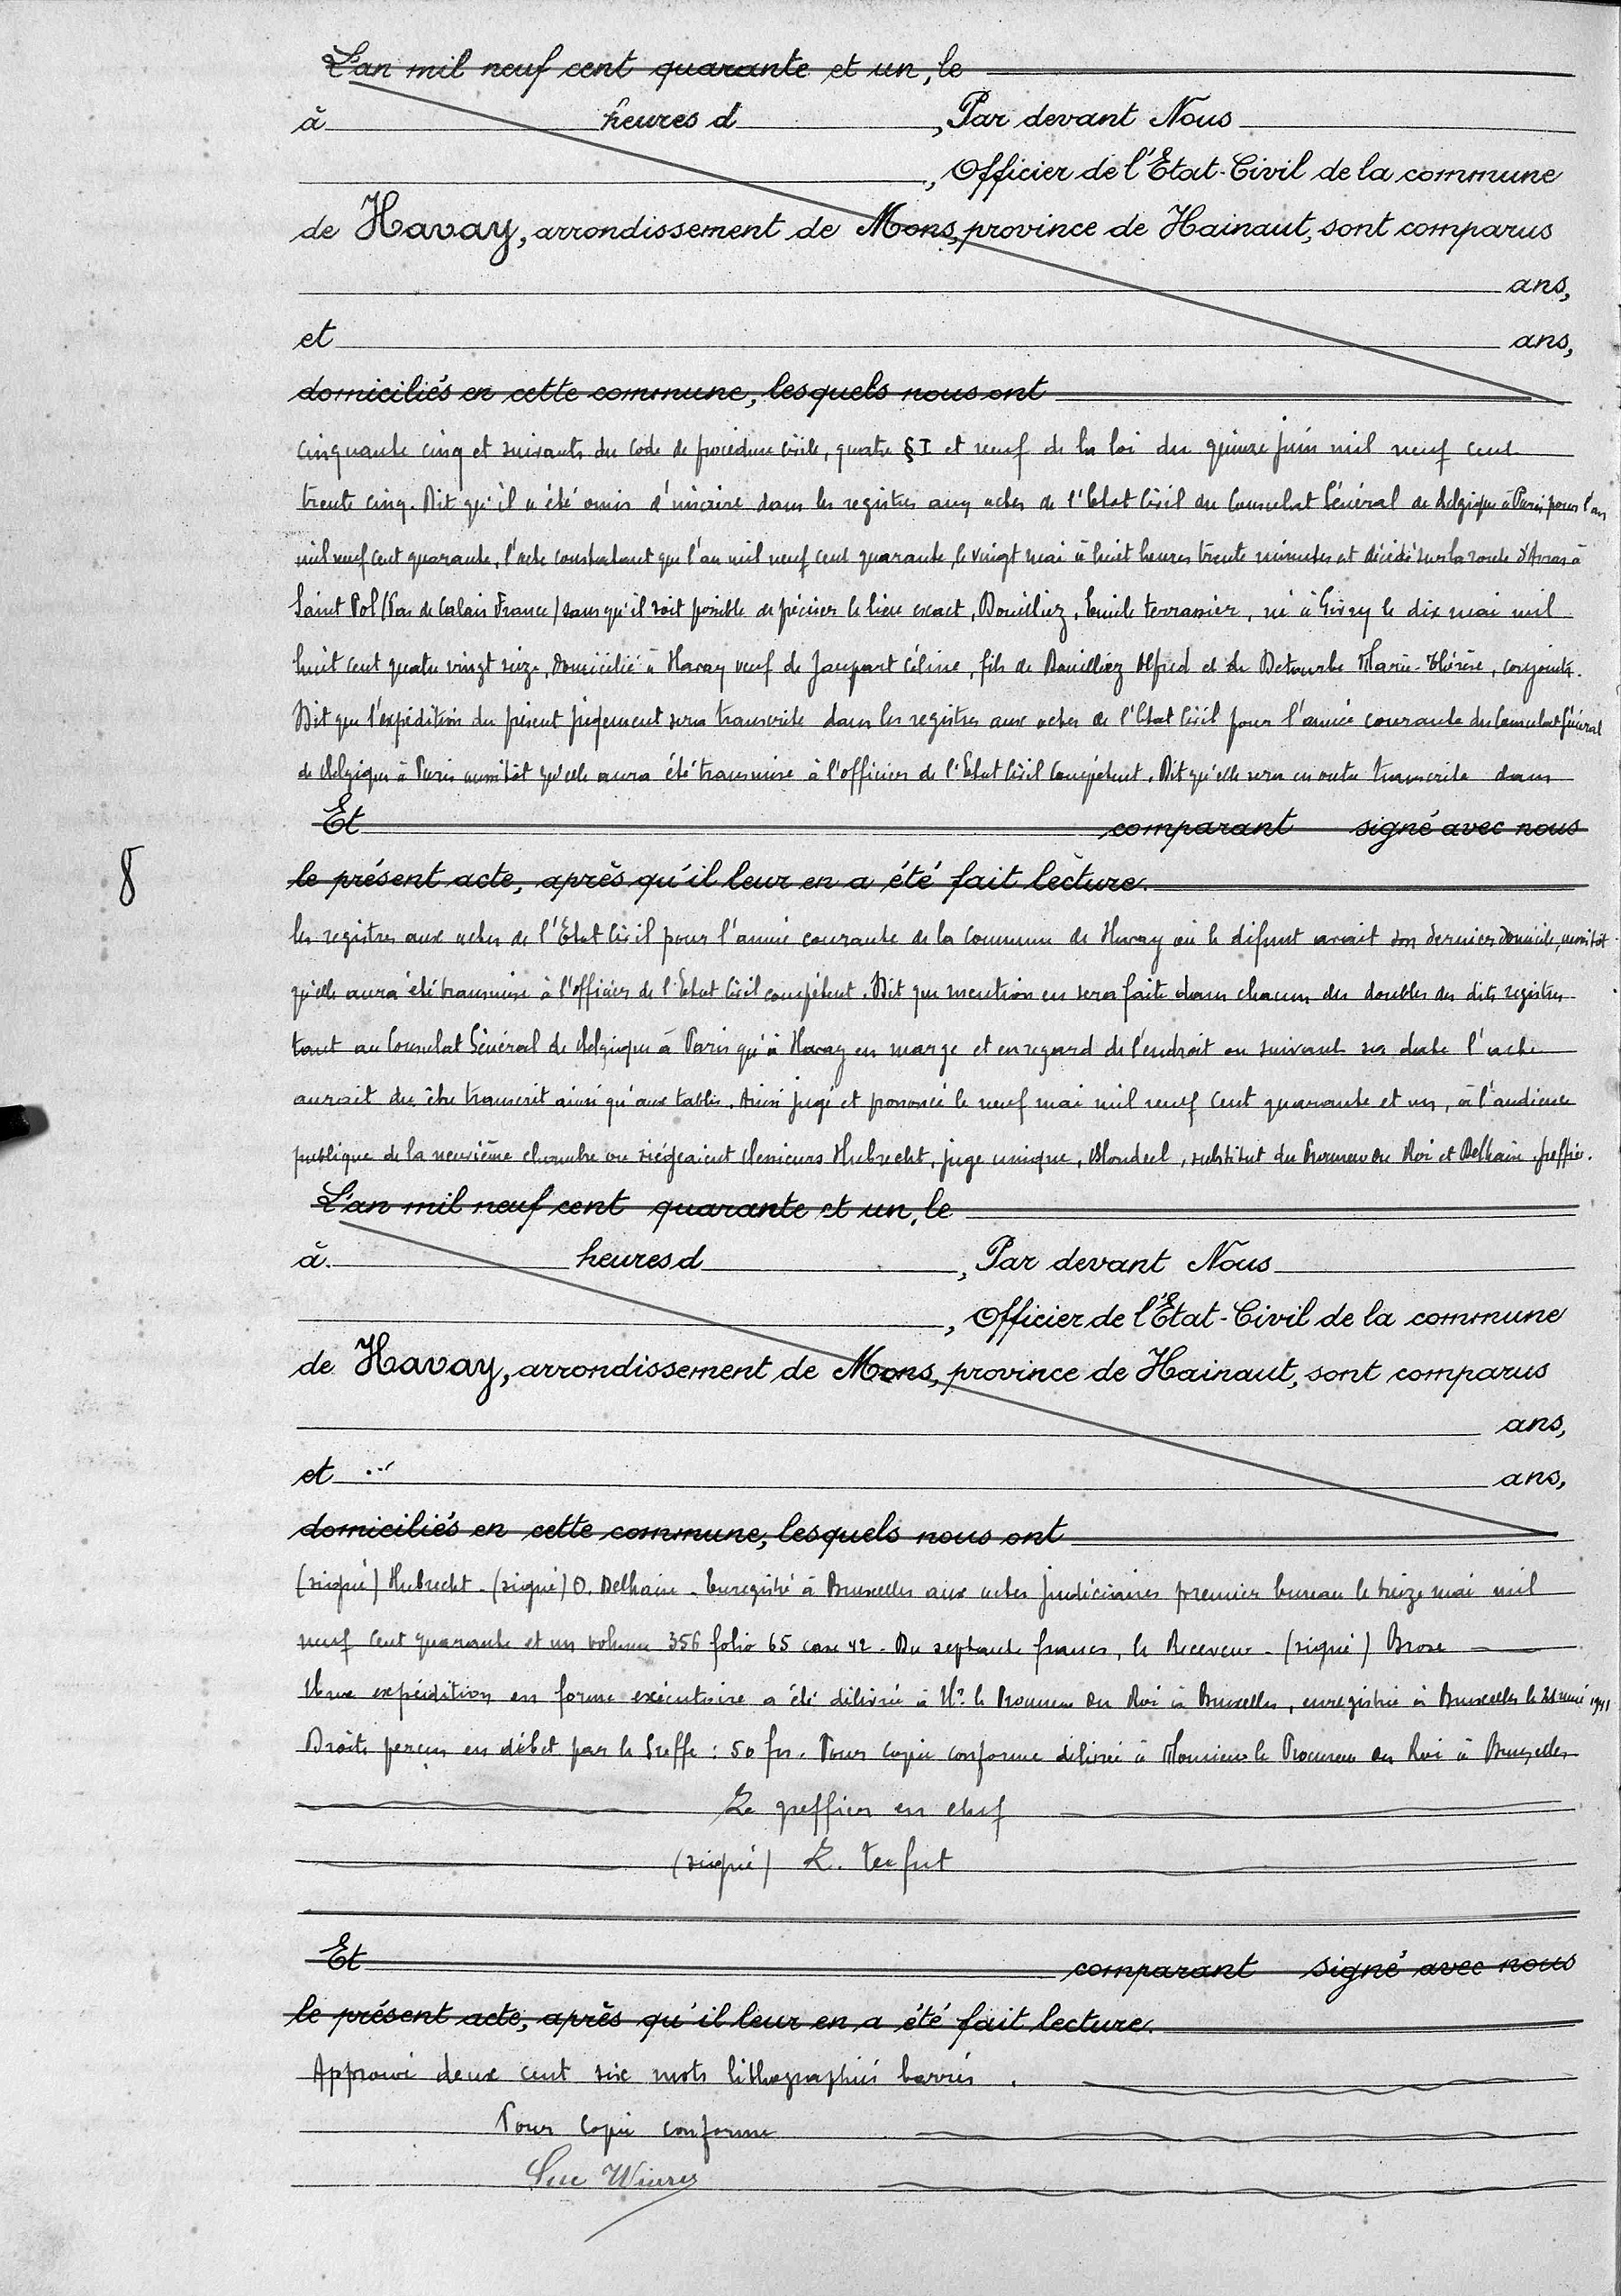 L'an mil neuf cent quarante et un, le
à heures d , Par devant Nous
, Officier de l'Etat-Civil de la commune
de Havay, arrondissement de Mons, province de Hainaut, sont comparus
ans,
et ans,
domiciliés en cette commune, lesquels nous ont
cinquante cinq et suivants du Code de procédure civile, quatre § I et neuf de la loi du quinze juin mil neuf cent
trente cinq. Dit qu'il a été omis d'inscrire dans les registres aux actes de l'Etat Civil du Consulat Général de Belgique à Paris pour l'an
mil neuf cent quarante, l'acte constatant que l'an mil neuf cent quarante, le vingt mai à huit heures trente minutes est décédé sur la route d'Arras à
Saint Pol (Pas de Calais France) sans qu'il soit possible de préciser le lieu exact, Bouilliez, Emile terrassier, né à Givry le dix mai mil
huit cent quatre vingt seize, domicilié à Havay veuf de Jaupart Céline, fils de Bouilliez Alfred et de Detourbe Marie-Thérèse, conjoints.
Dit que l'expédition du présent jugement sera transcrite dans les registres aux actes de l'Etat Civil pour l'année courante du Consulat Général
de Belgique à Paris aussitôt qu'elle aura été transmise à l'officier de l'Etat Civil compétent. Dit qu'elle sera en outre transcrite dans
Et comparant signé avec nous
8
le présent acte, après qu'il leur en a été fait lecture.
les registres aux actes de l'Etat Civil pour l'année courante de la Commune de Havay où le défunt avait son dernier domicile, aussitôt
qu'elle aura été transmise à l'officier de l'Etat Civil compétent. Dit que mention en sera faite dans chacun des doubles des dits registres
tant au Consulat Général de Belgique à Paris qu'à Havay en marge et en regard de l'endroit où suivant sa date l'acte
aurait du être transcrit ainsi qu'aux tables. Ainsi jugé et prononcé le neuf mai mil neuf cent quarante et un, à l'audience
publique de la neuvième chambre où siégeaient Messieurs Hubrecht, juge unique, Blondeel, substitut du Procureur du Roi et Delhain greffier.
L'an mil neuf cent quarante et un, le
à heures d , Par devant Nous
, Officier de l'Etat-Civil de la commune
de Havay, arrondissement de Mons, province de Hainaut, sont comparus
ans,
et ans,
domiciliés en cette commune, lesquels nous ont
(signé) Hubrecht - (signé) O. Delhain - Enregistré à Bruxelles aux actes judiciaires premier bureau le treize mai mil
neuf cent quarante et un volume 356 folio 65 case 42 - Du septante francs, le Receveur - (signé) Brose
Une expédition en forme exécutoire a été délivrée à Mr le Procureur du Roi à Bruxelles, enregistrée à Bruxelles le 21 mai 1941
Droits perçus en débet par le Greffe : 50 frs. Pour copie conforme délivrée à Monsieur le Procureur du Roi à Bruxelles
Le greffier en chef
(signé) L.
Et comparant signé avec nous
le présent acte, après qu'il leur en a été fait lecture.
Approuvé deux cent six mots lithographiés barrés.
Pour copie conforme